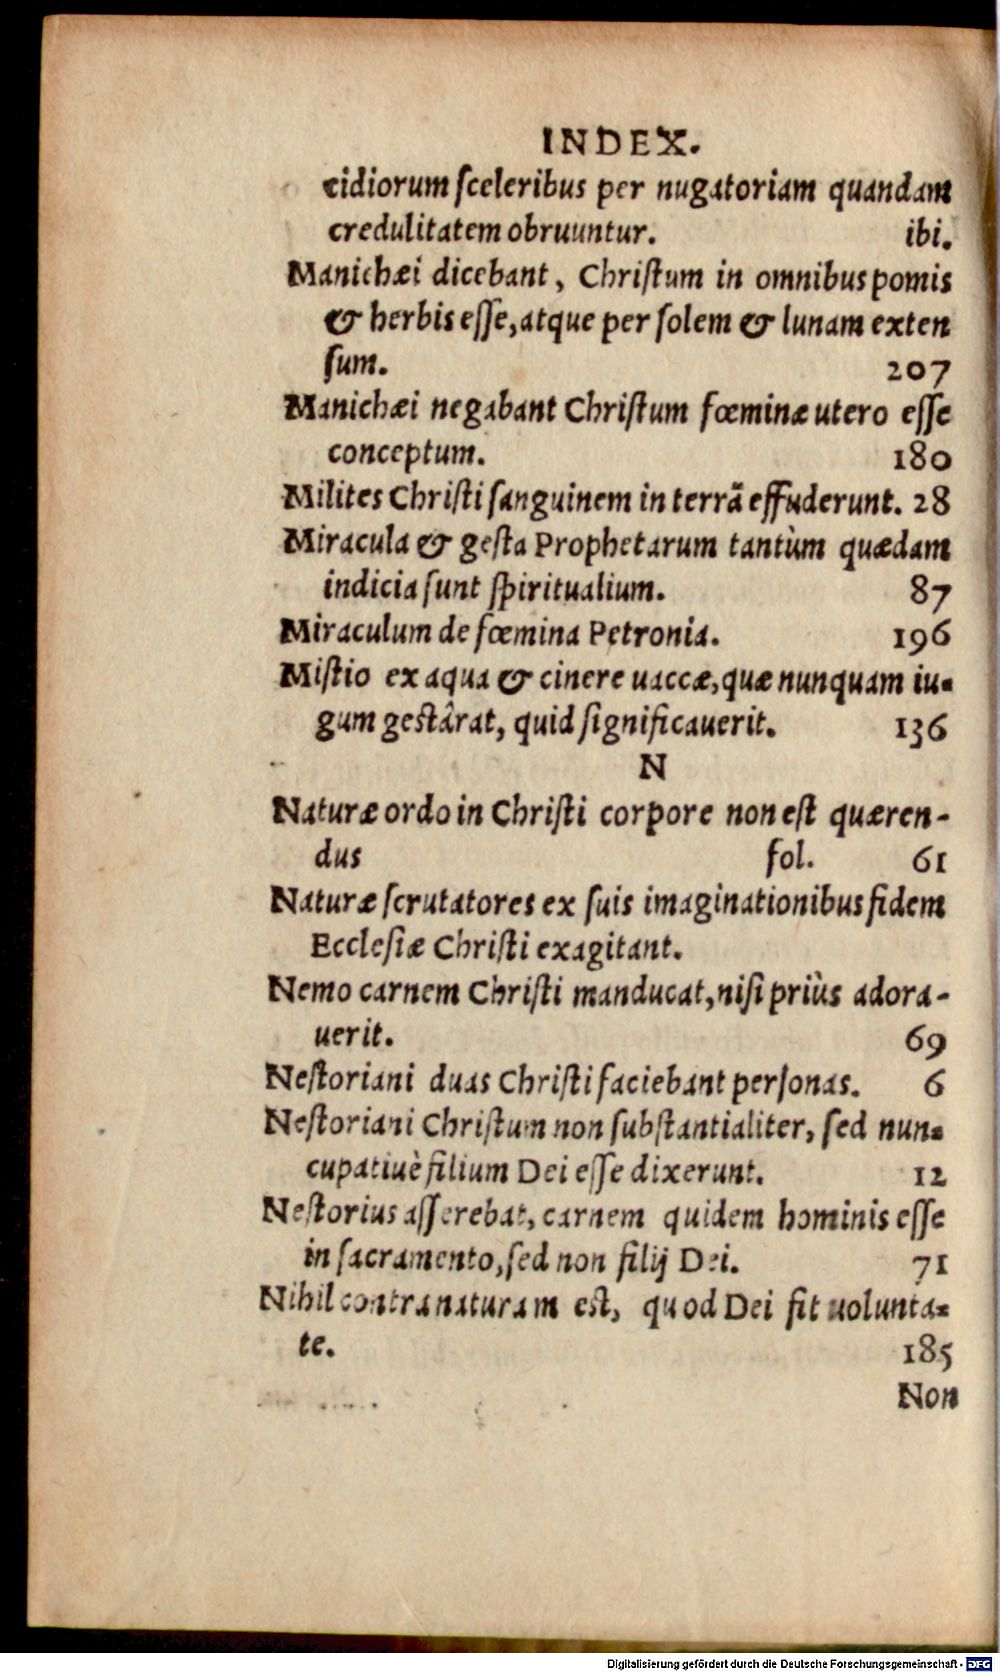 INDEX.
cidiorum sceleribus per nugatoriam quandam
credulitatem obruuntur. ibi.
Manichæi dicebant, Christum in omnibus pomis
& herbis esse, atque per solem & lunam exten
sum. 207
Manichæi negabant Christum fœminæ utero esse
conceptum. 180
Milites Christi sanguinem in terrã effuderunt. 28
Miracula & gesta Prophetarum tantùm quædam
indicia sunt spiritualium. 87
Miraculum de fœmina Petronia. 196
Mistio ex aqua & cinere uaccæ, quæ nunquam iu-
gum gestârat, quid significauerit. 136
N
Naturæ ordo in Christi corpore non est quæren-
dus fol. 61
Naturæ scrutatores ex suis imaginationibus fidem
Ecclesiæ Christi exagitant.
Nemo carnem Christi manducat, nisi priùs adora-
uerit. 69
Nestoriani duas Christi faciebant personas. 6
Nestoriani Christum non substantialiter, sed nun-
cupatiuè filium Dei esse dixerunt. 12
Nestorius asserebat, carnem quidem hominis esse
in sacramento, sed non filij Dei. 71
Nihil contra naturam est, quod Dei fit uolunta-
te. 185
Non
Digitalisierung gefördert durch die Deutsche Forschungsgemeinschaft - DFG